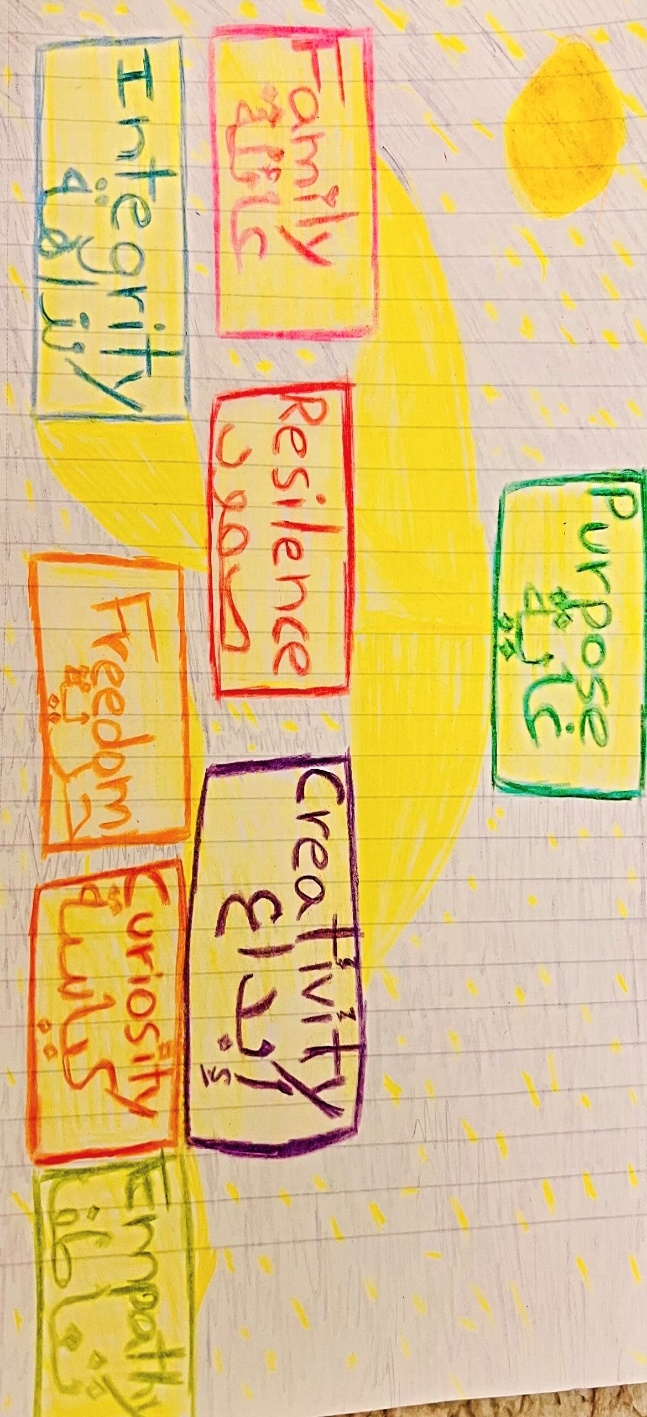 Purpose
غاية
Family
عائلة
Resilence
صمود
Creativity
إبداع
Integrity
نزاهة
Freedom
حرية
Curiosity
كياسة
Empathy
تعاطف